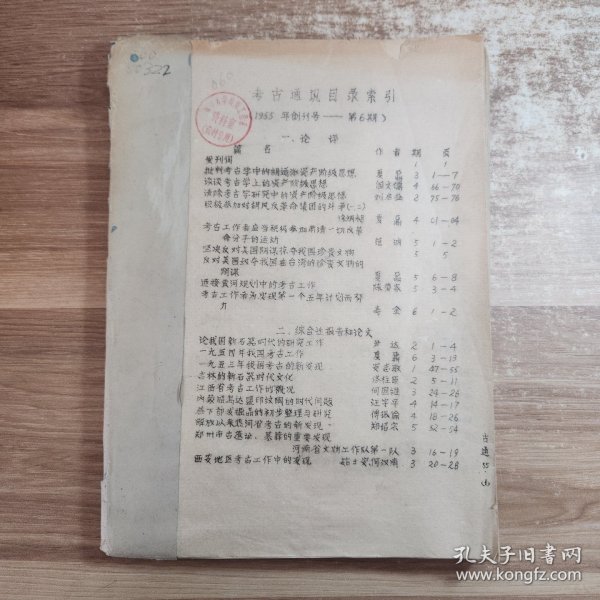 50322
考古通讯目录索引
(1955 年创刊号——第6期)
一、论 评
篇 名 作者 期 页
发刊词 1 1
批判考古学中的胡适派资产阶级思想 夏鼐 3 1—7
谈谈考古学上的资产阶级思想 阎文儒 4 66—70
清除考古学研究中的资产阶级思想 2 75—76
积极参加对胡风反革命集团的斗争(一、二)
4
考古工作者应当积极参加肃清一切反革
命分子的运动 5 1—2
坚决反对美国阴谋掠夺我国珍贵文物 5 5
反对美国掠夺我国在台湾的珍贵文物的
阴谋 夏鼐 5 6—8
迎接黄河规划中的考古工作 5 3—4
考古工作者为实现第一个五年计划而努
力 寿金 6 1—2
二、综合性报告和论文
论我国新石器时代的研究工作 尹达 2 1—4
一九五四年我国考古工作 夏鼐 6 3—13
一九五三年我国考古的新发现 安志敏 1 47—55
吉林的新石器时代文化 2 5—11
江西省考古工作的概况 3 24—28
内蒙 印纹陶的时代问题 汪宇平 4 14—17
的初步整理与研究 傅振伦 4 18—26
解放以来热河省考古的新发现 郑绍宗 5 52—54
郑州市古遗址、墓葬的重要发现
河南省文物工作队第一队 3 16—19
西安地区考古工作中的发现 茹士安,何汉南 3 20—28
孔夫子旧书网
www.kongfz.com